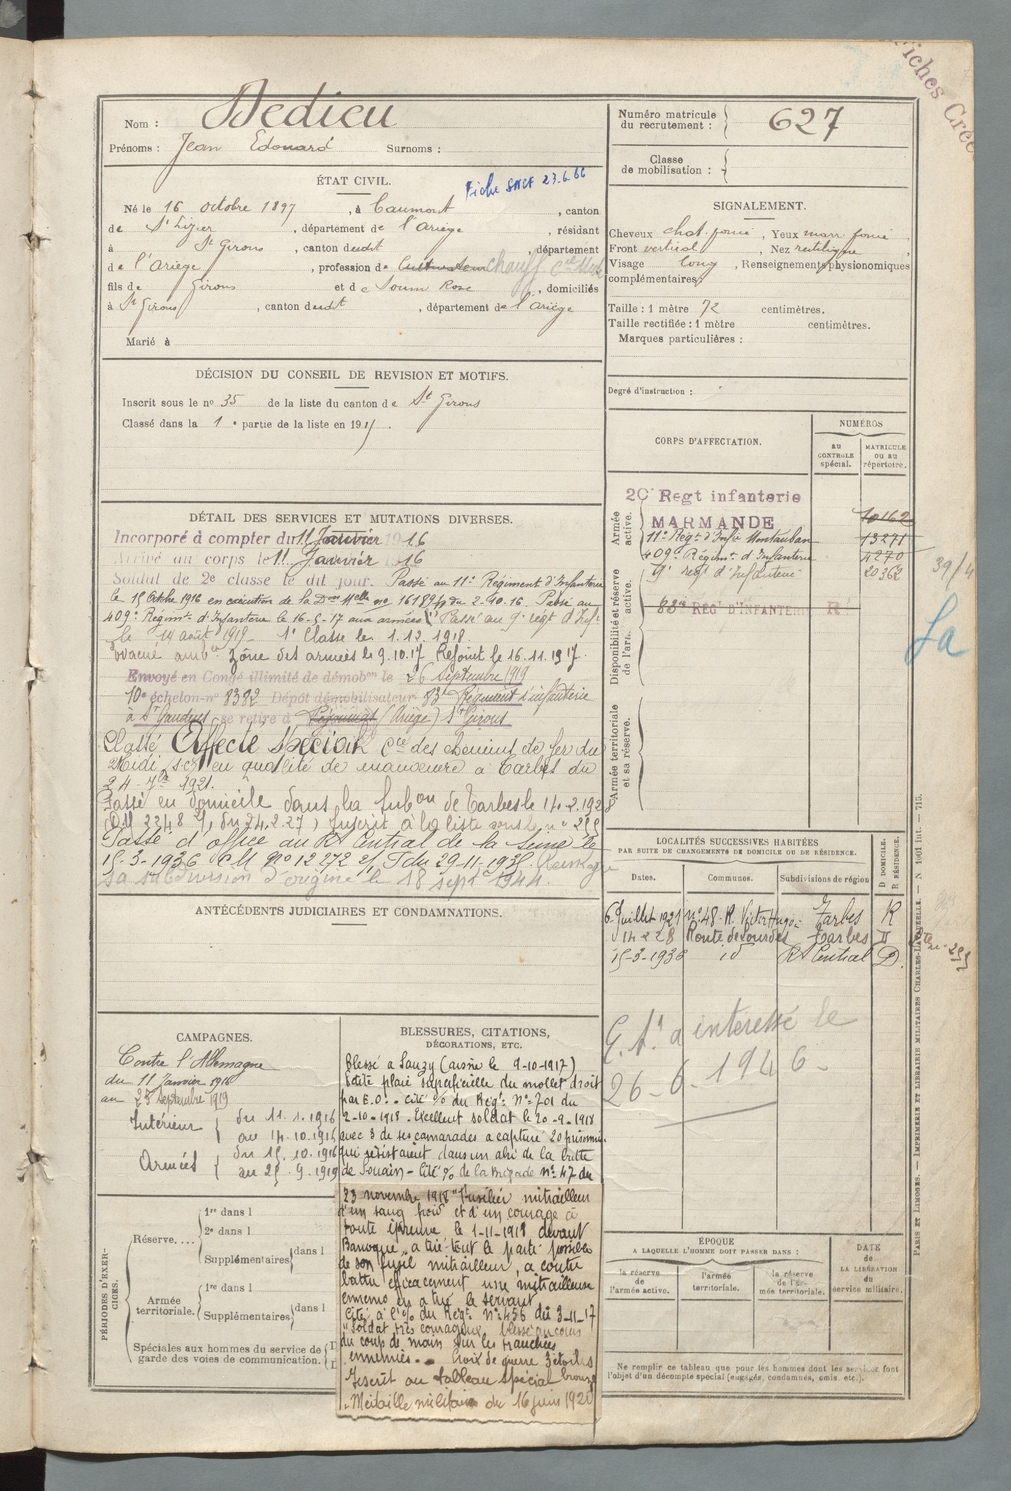 Fiches Créé
Nom : Dedieu
Prénoms : Jean Edouard Surnoms :
Numéro matricule du recrutement : 627
Classe de mobilisation :
ÉTAT CIVIL.
Fiche SNCF 23.6.66
Né le 16 octobre 1897, à Caumont, canton
de St Lizier, département de l'Ariège, résidant
à St Girons, canton dudit, département
de l'Ariège, profession de Cultivateur chauff
fils de Girons et de Soum Rose, domiciliés
à St Girons, canton dudit, département de l'Ariège
Marié à
SIGNALEMENT.
Cheveux chat. foncé, Yeux marr. foncé,
Front vertical, Nez rectiligne
Visage long, Renseignements physionomiques
complémentaires:
Taille : 1 mètre 72 centimètres.
Taille rectifiée : 1 mètre centimètres.
Marques particulières :
Degré d'instruction :
DÉCISION DU CONSEIL DE REVISION ET MOTIFS.
Inscrit sous le no 35 de la liste du canton de St Girons
Classé dans la 1e partie de la liste en 191
CORPS D'AFFECTATION.
NUMÉROS
AU CONTROLE spécial.
MATRICULE OU AU répertoire.
Armée active.
20 Regt infanterie
MARMANDE 10162
11e Régt d'Infie Montauban 13271
409e Régimt d'Infanterie 4270
Disponibilité et réserve de l'armée active.
9e regt d'Infanterie 20362
83e REGt D'INFANTERIE R
39/4
Sa
Armée territoriale et sa réserve.
DÉTAIL DES SERVICES ET MUTATIONS DIVERSES.
Incorporé à compter du 11 Janvier 1916
Arrivé au corps le 11 Janvier 1916
Soldat de 2e classe le dit jour. Passé au 11e Régiment d'Infanterie
le 15 Octobre 1916 en exécution de la Don Mlle no du 2-10-16. Passé au
409e Régimt d'Infanterie le 16-5-17 aux armées Passé au 9e regt d'Inf.
le 14 août 1919 - 1e Classe le 1.12.1918.
Evacué zône des armées le 9.10.17 Rejoint le 16.11.1917.
Envoyé en Congé illimité de démobon le 26 septembre 1919
10e échelon no 8382 Dépôt démobilisateur 83e Régiment d'infanterie
à St Gaudens se retire à (Ariège) St Girons
Classé Affecté Spécial Cie des Chemins de fer du
Midi en qualité de manœuvre à Tarbes du
24 7bre 1921.
Passé en domicile dans la Subon de Tarbes le 14-2-1928
Inscrit à la liste
Passé d'office au Rt Central de la Seine le
15-3-1936 CM No 12272 du 29-11-1935.
sa subdivision d'origine le 18 sept 1944.
ANTÉCÉDENTS JUDICIAIRES ET CONDAMNATIONS.
LOCALITÉS SUCCESSIVES HABITÉES
PAR SUITE DE CHANGEMENTS DE DOMICILE OU DE RÉSIDENCE.
Dates. Communes. Subdivisions de région D DOMICILE. R RÉSIDENCE.
6 Juillet 1921 no 48. R. Victor Hugo Tarbes R
14-2-28 Route de Lourdes Tarbes D
15-3-1936 id Rt Central D.
intéressé le
26-6-1946-
CAMPAGNES.
Contre l'Allemagne
du 11 Janvier 1916
au 25 Septembre 1919
Intérieur du 11.1.1916
au 14.10.1916
Armées du 15.10.1916
au 25.9.1919
BLESSURES, CITATIONS,
DÉCORATIONS, ETC.
Blessé à (aisne le 9-10-1917)
Petite plaie superficielle du mollet droit
par E.O. - Cité % du Régt No 701 du
2-10-1918 - Excellent soldat le 20-9-1918
avec 3 de ses camarades a capturé 20 prisonniers
qui résistaient dans un abri de la butte
de Souain - Cité % de la Brigade no 47 du
23 novembre 1918 "Fusilier mitrailleur
d'un sang froid et d'un courage à
toute épreuve le 1-11-1918 devant
a tiré tout le parti possible
de son fusil mitrailleur, a contre
battu efficacement une mitrailleuse
ennemie en a tué le servant
Cité à l'% du Régt No 456 du 3-11-17
"Soldat très courageux, blessé au cours
du coup de main sur les tranchées
ennemies. Croix de guerre 3 étoiles
Inscrit au tableau spécial bronze
Médaille militaire du 16 juin 1920
PÉRIODES D'EXERCICES.
Réserve....
1re dans l
2e dans l
Supplémentaires dans l
Armée territoriale.
1re dans l
Supplémentaires dans l
Spéciales aux hommes du service de
garde des voies de communication.
ÉPOQUE
A LAQUELLE L'HOMME DOIT PASSER DANS :
la réserve de l'armée active.
l'armée territoriale.
la réserve de l'armée territoriale.
DATE de LA LIBÉRATION du service militaire.
Ne remplir ce tableau que pour les hommes dont les services font
l'objet d'un décompte spécial (engagés, condamnés, omis, etc.).
PARIS ET LIMOGES. — IMPRIMERIE ET LIBRAIRIE MILITAIRES CHARLES-LAVAUZELLE. — N° 1001 int. — 715.